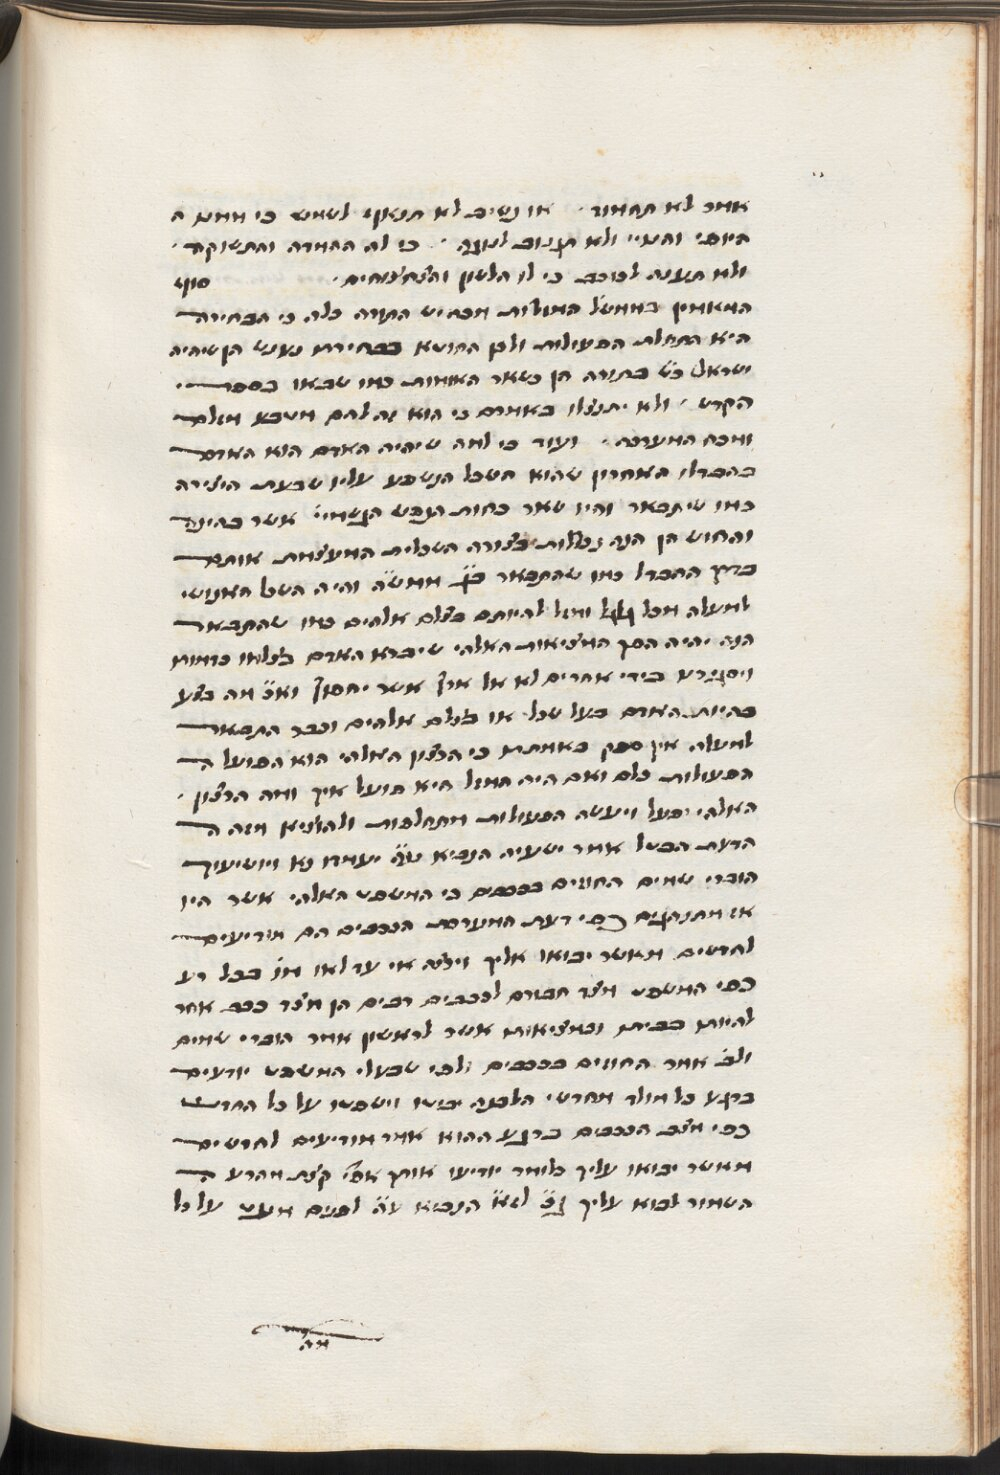 אמר לא תחמוד · או נשיב לא תנאף לשמש כי ממנו ה
היומי והשיי ולא תגנוב לנוגה · כי לה החמדה והתשוקה ·
ולא תענה לכוכב כי לו הלשון והצחצוחים · סוף
המאמין בממשל המזלות מכחיש התורה כלה כי הבחירה
היא התחלת הפעולות ולכן החוטא בבחירתו נענש הן שיהיה
ישראל כ״ש בתורה הן משאר האומות כמו שבאו בספרי
הקדש · ולא יתנצלו באמרם כי הוא זה להם משפט מזלם
ומכח המערכה · ועוד כי למה שיהיה האדם הוא האדם
בהבדלו האחרון שהוא השכל הנשפע עליו שבעת היצירה
כמו שיתבאר והיו שאר כחות הנפש הגשמיי׳ אשר בהינה
והחוש הן הנה נכללות בצורה השכלית המעצמת אותם
כדין ההבדל כמו שהתבאר והיה השכל האנושי
למעלה מכל גלגל ומזל להיותם בצלם אלהים כמו שהתבאר
הנה יהיה הסך המציאות האלהי שיברא האדם בצלמו כדמותו
ויסגירהו בידי אחרים לא אל ארץ אשר יחסון וא״כ מה בצע
בהיות האדם בעל שכל או בצלם אלהים וכבר התבאר
למעלה אין ספק באמתת כי הרצון האלהי הוא הפועל ה
הפעולות כלם ואם היה המזל היא פועל איך ומה הרצון ·
האלהי יפעל ויעשה הפעולות מתחלפות ולהוציא מזה ה
הדעת הבטל אמר ישעיה הנביא ע״ה יעמדו נא ויושיעוך
הוברי שמים החוזים בככבים כי המשפט האלהי אשר היו
אז מתנהגים כפי דעת המערכת הככבים הם מודיעים
לחדשים מאשר יבואו אליך וילפה אי עד לאו מן בבל רע
כפי המשפט מצד חבורם לככבים רבים הן מצד ככב אחד
להיות בבית ובמציאות אשר לראשון אמר הוברי שמים
ולב׳ אמר החוזים בככבים ולפי שבעלי המשפט יודעים
ברגע כל מולד מחדשי הלבנה יביטו וישפטו על כל החדש
כפי מצב הככבים ברגע ההוא אמר מודיעים לחדשים
מאשר יבואו עליך כלומר יודיעו אותך אפי׳ קצת מהרע ה
השמור לבוא עליך הנביא ע״ה לפנים מעט על כל
מה